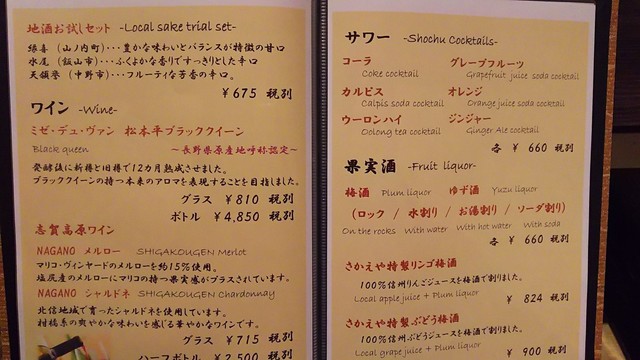 地酒お試しセット -Local sake trial set-
縁喜（山ノ内町）・・・豊かな味わいとバランスが特徴の甘口
水尾（飯山市）・・・ふくよかな香りですっきりとした辛口
天領誉（中野市）・・・フルーティな芳香の辛口。
¥675 税別
ワイン -Wine-
ミゼ・デュ・ヴァン 松本平ブラッククイーン
Black queen ～長野県原産地呼称認定～
発酵後に新樽と旧樽で12カ月熟成させました。
ブラッククイーンの持つ本来のアロマを表現することを目指しました。
グラス ¥810 税別
ボトル ¥4,850 税別
志賀高原ワイン
NAGANO メルロー SHIGAKOUGEN Merlot
マリコ・ヴィンヤードのメルローを約15%使用。
塩尻産のメルローにマリコの持つ果実感がプラスされています。
NAGANO シャルドネ SHIGAKOUGEN Chardonnay
北信地域で育ったシャルドネを使用しています。
柑橘系の爽やかな味わいを感じる華やかなワインです。
グラス ¥715 税別
ハーフボトル ¥2,500 税別
サワー -Shochu Cocktails-
コーラ グレープフルーツ
Coke cocktail Grapefruit juice soda cocktail
カルピス オレンジ
Calpis soda cocktail Orange juice soda cocktail
ウーロンハイ ジンジャー
Oolong tea cocktail Ginger Ale cocktail
各 ¥ 660 税別
果実酒 -Fruit liquor-
梅酒 Plum liquor ゆず酒 Yuzu liquor
（ロック / 水割り / お湯割り / ソーダ割り）
On the rocks With water With hot water With soda
各 ¥ 660 税別
さかえや特製リンゴ梅酒
100%信州りんごジュースを梅酒で割りました。
Local apple juice + Plum liquor
¥ 824 税別
さかえや特製ぶどう梅酒
100%信州ぶどうジュースを梅酒で割りました。
Local grape juice + Plum liquor
¥ 900 税別